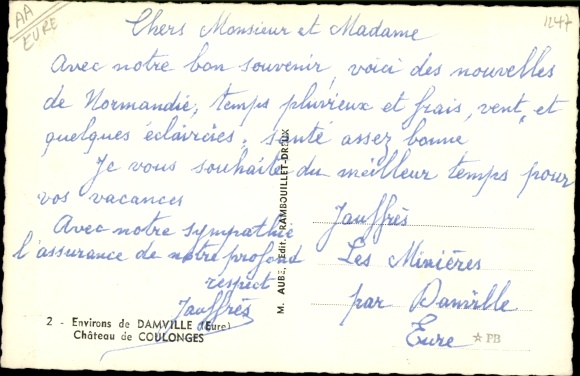 AA
EURE
1247
Chers Monsieur et Madame
Avec notre bon souvenir, voici des nouvelles
de Normandie, temps pluvieux et frais, vent, et
quelques éclaircies, santé assez bonne
Je vous souhaite du meilleur temps pour
vos vacances
Avec notre sympathie
l'assurance de notre profond
respect
Jauffrès
M. AUBE, Edit. RAMBOUILLET-DREUX
Jauffrès
Les Minières
par Damville
Eure
☆ PB
2 - Environs de DAMVILLE (Eure)
Château de COULONGES